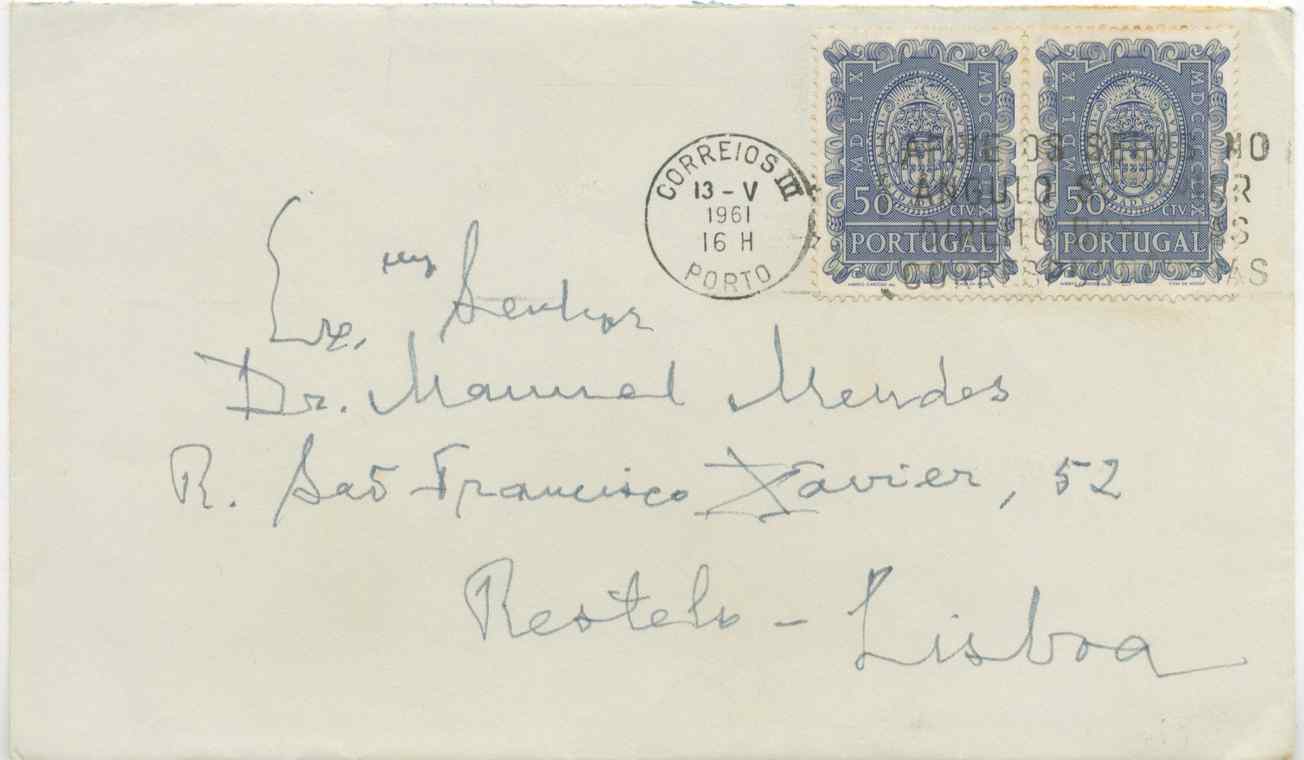 CORREIOS III
13 - V
1961
16 H
PORTO
MDLIX
50
CTV.
PORTUGAL
MDLIX
50
CTV.
PORTUGAL
NO
ANGULO
DIREITO
Exmo Senhor
Dr. Manuel Mendes
R. São Francisco Xavier, 52
Restelo - Lisboa